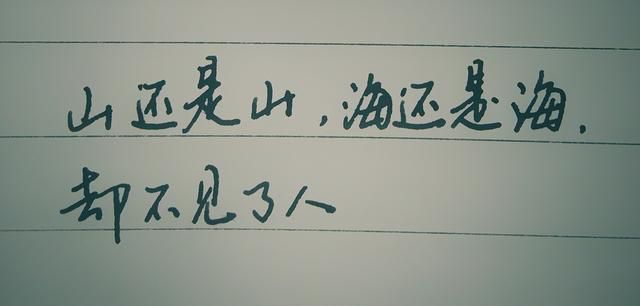 山还是山，海还是海.
却不见了人